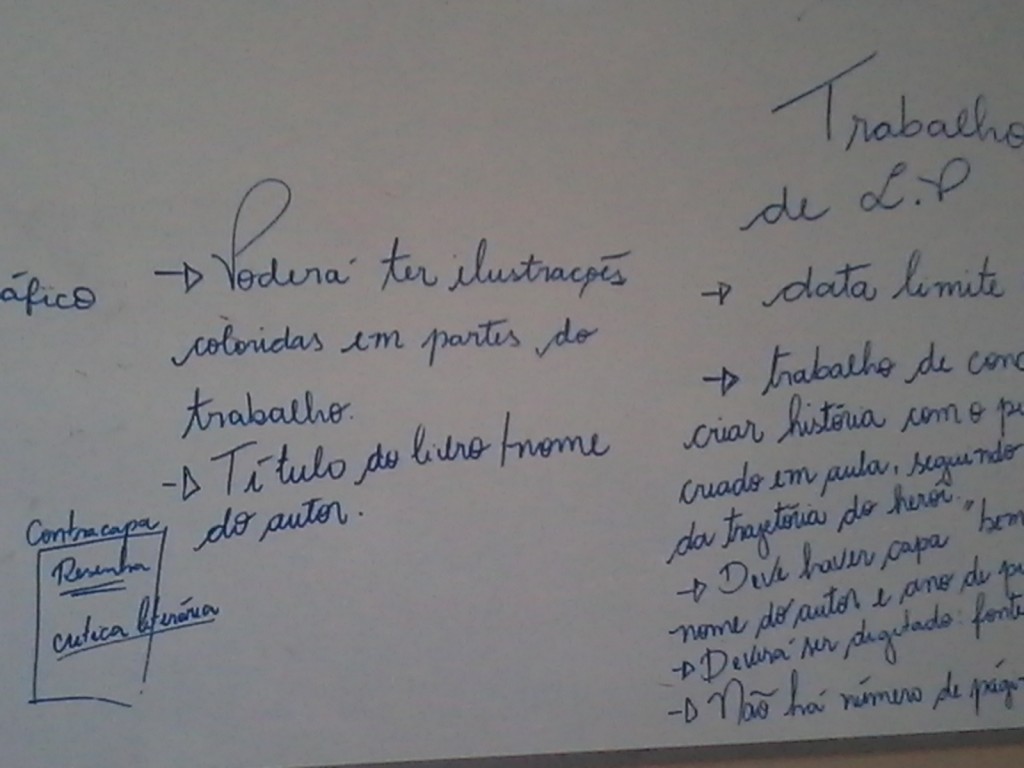 áfico
→ Poderá ter ilustrações
coloridas em partes do
trabalho.
→ Título do livro/nome
do autor.
Contracapa
Resenha
crítica literária
Trabalho
de L.P
→ data limite
→ trabalho de conc
criar história com o pe
criado em aula, seguindo
da trajetória do herói.
→ Deve haver capa "bem
nome do autor e ano de pu
→ Deverá ser digitado: fonte
→ Não há número de pági